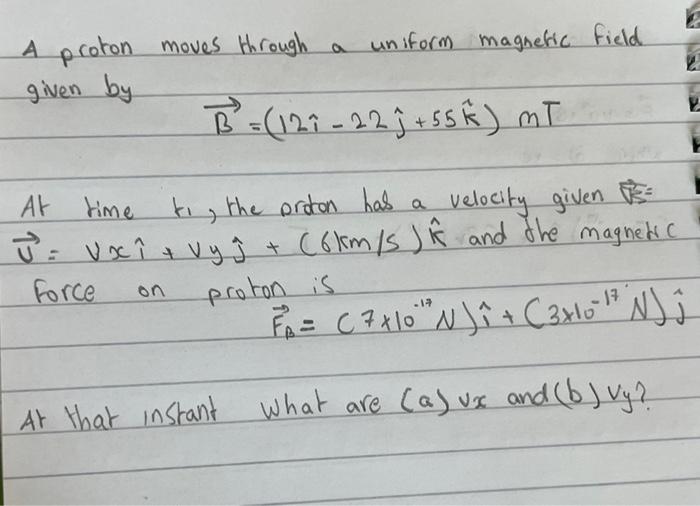 A proton moves through a uniform magnetic field
given by
B⃗ = (12î - 22ĵ + 55k̂) mT
At time t₁, the proton has a velocity given
v⃗ = vxî + vyĵ + (6km/s)k̂ and the magnetic
force on proton is
F⃗_B = (7×10⁻¹⁷ N)î + (3×10⁻¹⁷ N)ĵ
At that instant what are (a) vx and (b) vy?